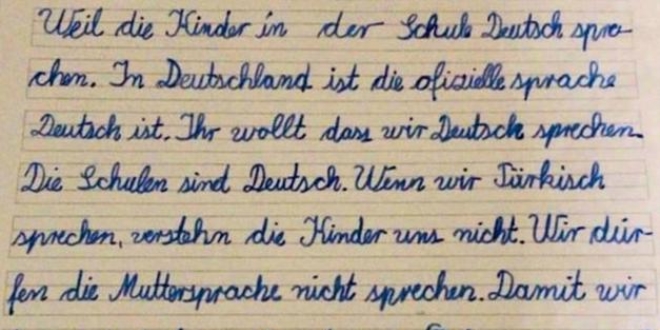 Weil die Kinder in der Schule Deutsch spre-
chen. In Deutschland ist die ofizielle sprache
Deutsch ist. Ihr wollt dass wir Deutsch sprechen.
Die Schulen sind Deutsch. Wenn wir Türkisch
sprechen, verstehn die Kinder uns nicht. Wir dür-
fen die Muttersprache nicht sprechen. Damit wir